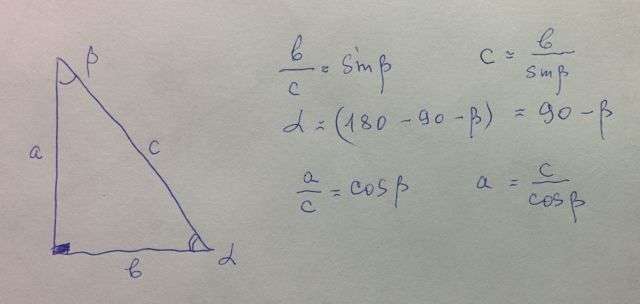 β
a
c
b
α
b/c = sinβ
c = b/sinβ
α = (180 - 90 - β) = 90 - β
a/c = cosβ
a = c/cosβ